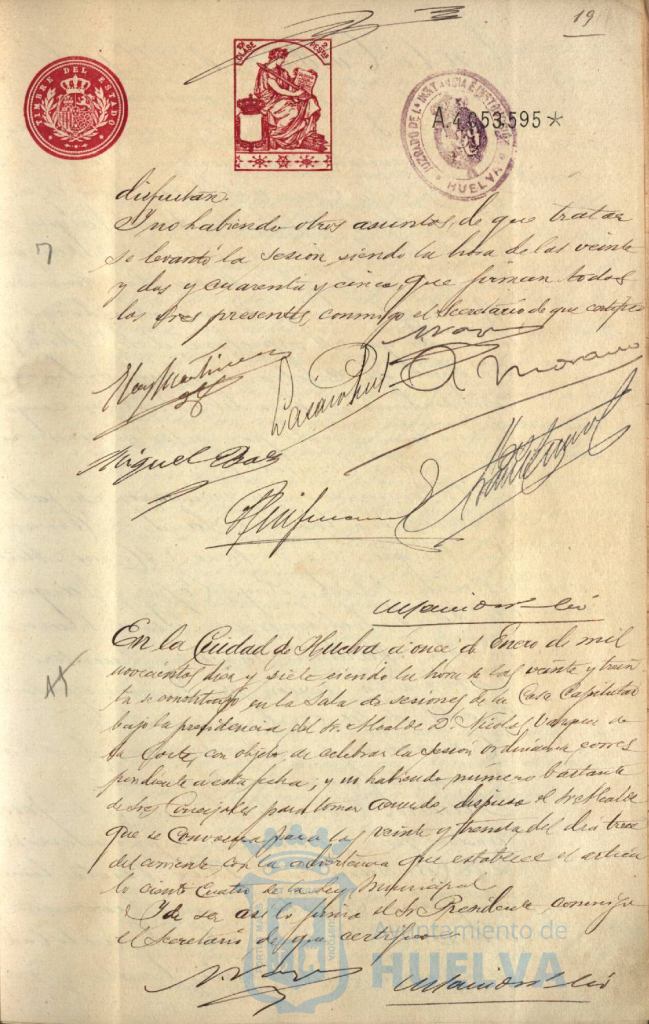 19
TIMBRE DEL ESTADO
CLASE
PESETAS
JUZGADO DE LA INSTANCIA E INSTRUCCION
HUELVA
A.4.653.595*
disfrutan.
Y no habiendo otros asuntos de que tratar
se levantó la sesion siendo la hora de las veinte
y dos y cuarenta y cinco, que firman todos
los Sres presentes, conmigo el Secretario de que certifico
Martinez
A Moreno
Miguel Baez
En la Ciudad de Huelva á once de Enero de mil
novecientos diez y siete siendo la hora de las veinte y trein
ta se constituyó en la Sala de sesiones de la Casa Capitular
bajo la presidencia del Sr. Alcalde D. Nicolas Vazquez de
la Corte, con objeto de celebrar la sesion ordinaria corres
pondiente á esta fecha, y no habiendo número bastante
de Sres Concejales para tomar acuerdo, dispuso el Sr Alcalde
que se convocara para la veinte y treinta del dia trece
del corriente, con la advertencia que establece el articu
lo ciento cuatro de la Ley Municipal.
Y de ser asi lo firma el Sr Presidente, conmigo
el Secretario de que certifico
Ayuntamiento de
HUELVA